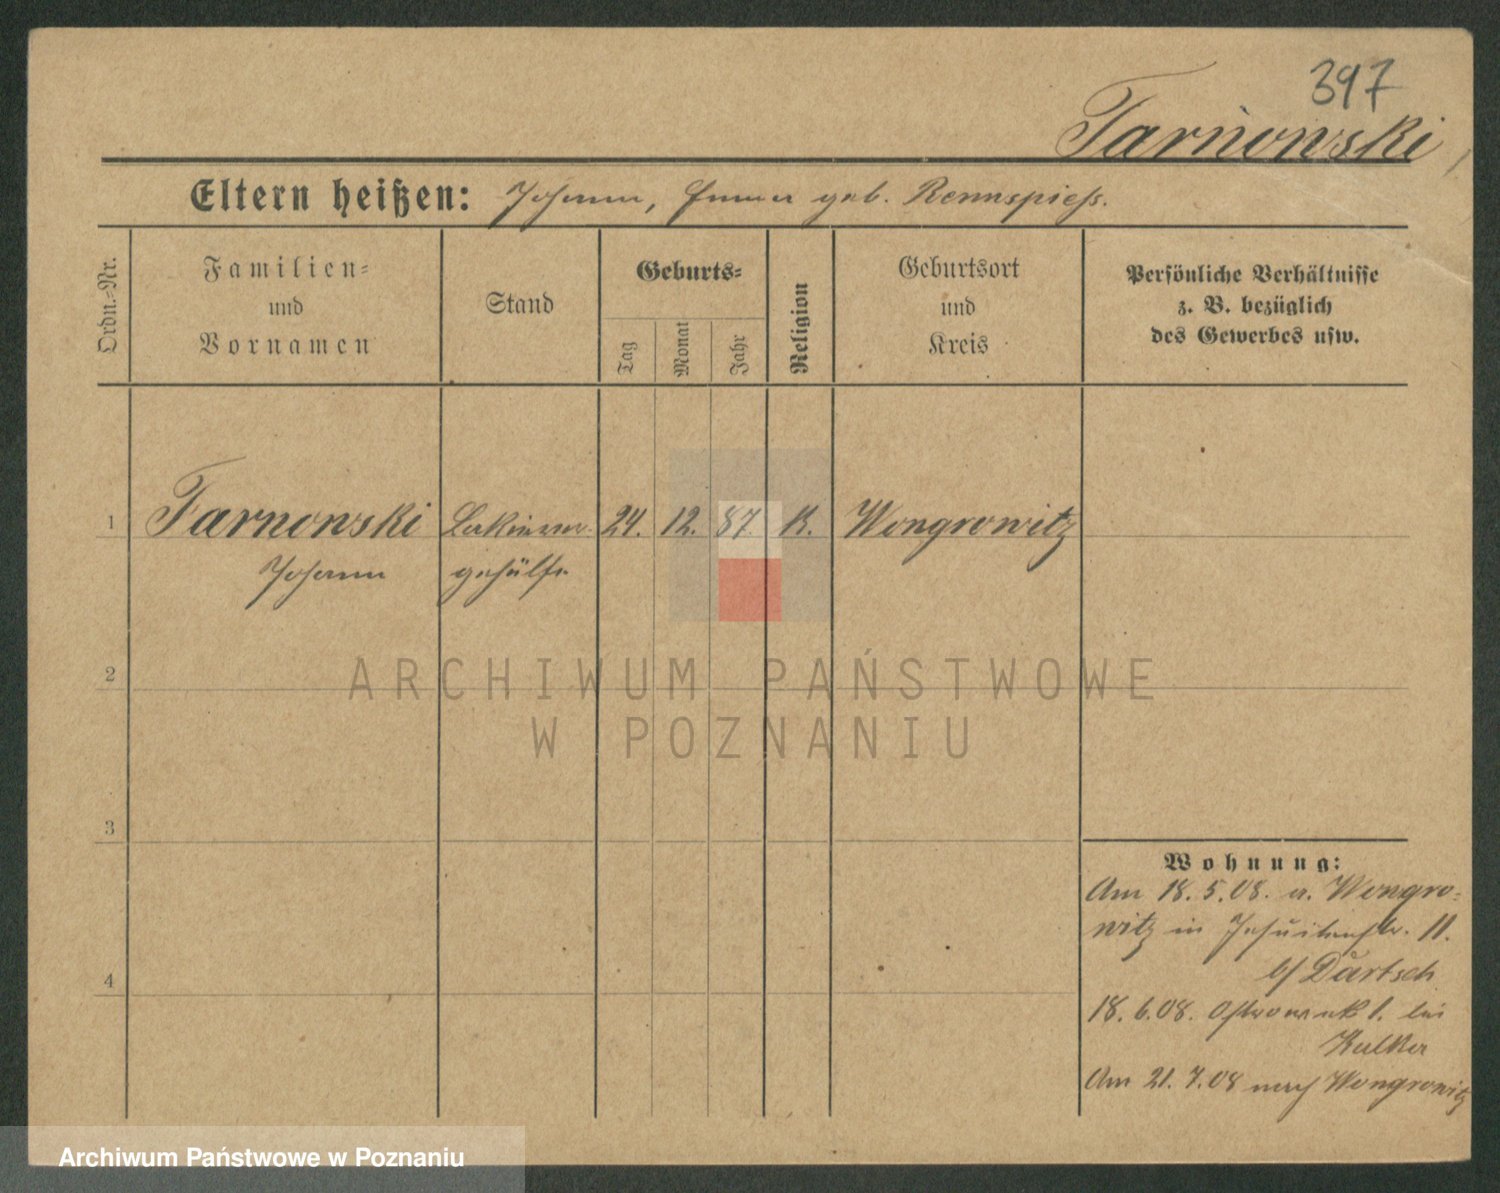 397
Tarnowski
Eltern heißen: Johann, Emma geb. Rennspiess.
Ordn.-Nr.
Familien-
und
Vornamen
Stand
Geburts-
Tag
Monat
Jahr
Religion
Geburtsort
und
Kreis
Persönliche Verhältnisse
z. B. bezüglich
des Gewerbes usw.
1 Tarnowski Lakierer- 24. 12. 87. K. Wongrowitz
Johann gehülfe
2
3
4
ARCHIWUM PAŃSTWOWE
W POZNANIU
Wohnung:
Am 18.5.08. a. Wongro-
witz in Jesuitenstr. 11.
b/ Dartsch
18.6.08. 1. bei
Am 21.7.08 nach Wongrowitz
Archiwum Państwowe w Poznaniu